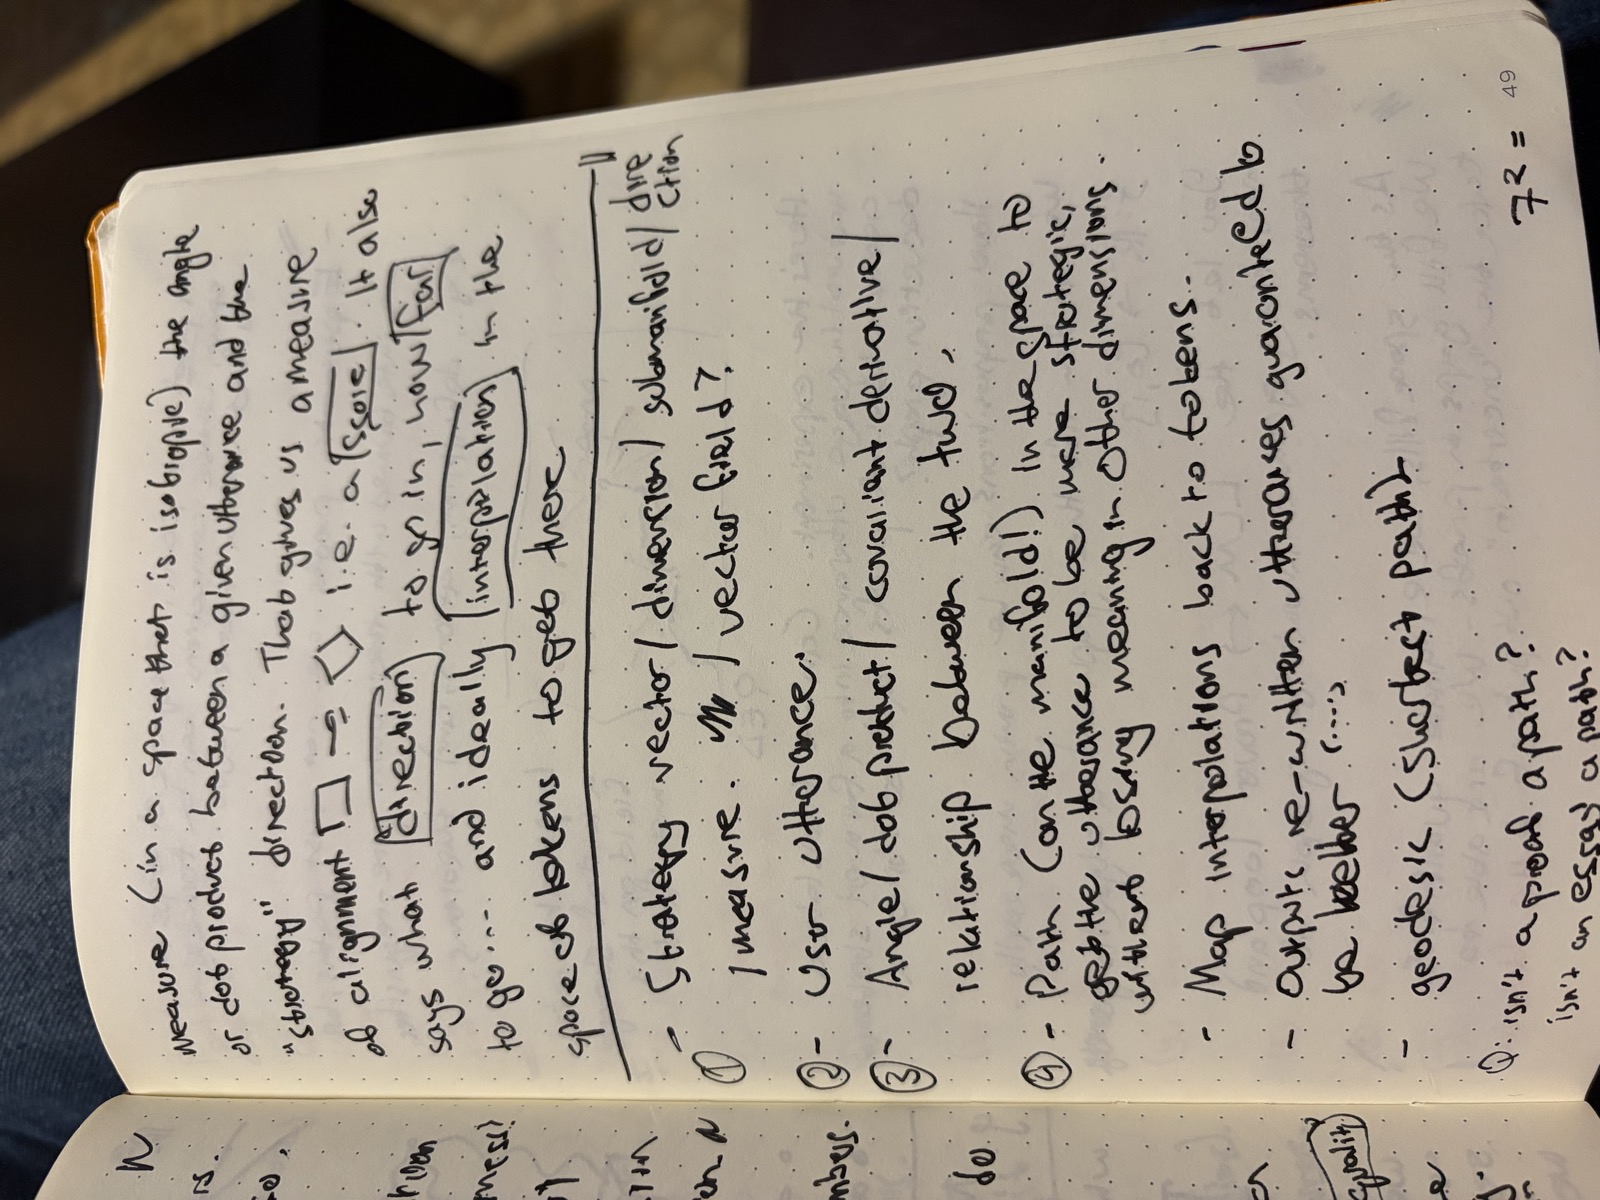 measure (in a space that is isotropic) the angle
or dot product between a given utterance and the
"strategy" direction. That gives us a measure
of alignment □ → ◇ i.e. a score. It also
says what direction to go in, how far
to go.... and ideally interpolation in the
space of tokens to get there
① - Strategy vector/ dimension/ submanifold/ dire
ction
/ measure. / vector field?
② - User utterance.
③ - Angle/ dot product/ covariant derivative/
relationship between the two.
④ - Path (on the manifold!) in the space to
get the utterance to be more strategic,
without losing meaning in other dimensions.
- Map interpolations back to tokens..
- Output: re-written utterances guaranteed to
be better (....)
- geodesic (shortest path)
Q: isn't a proof a path?
isn't an essay a path?
7² = 49
N
rs.
ness?
mbers.
do